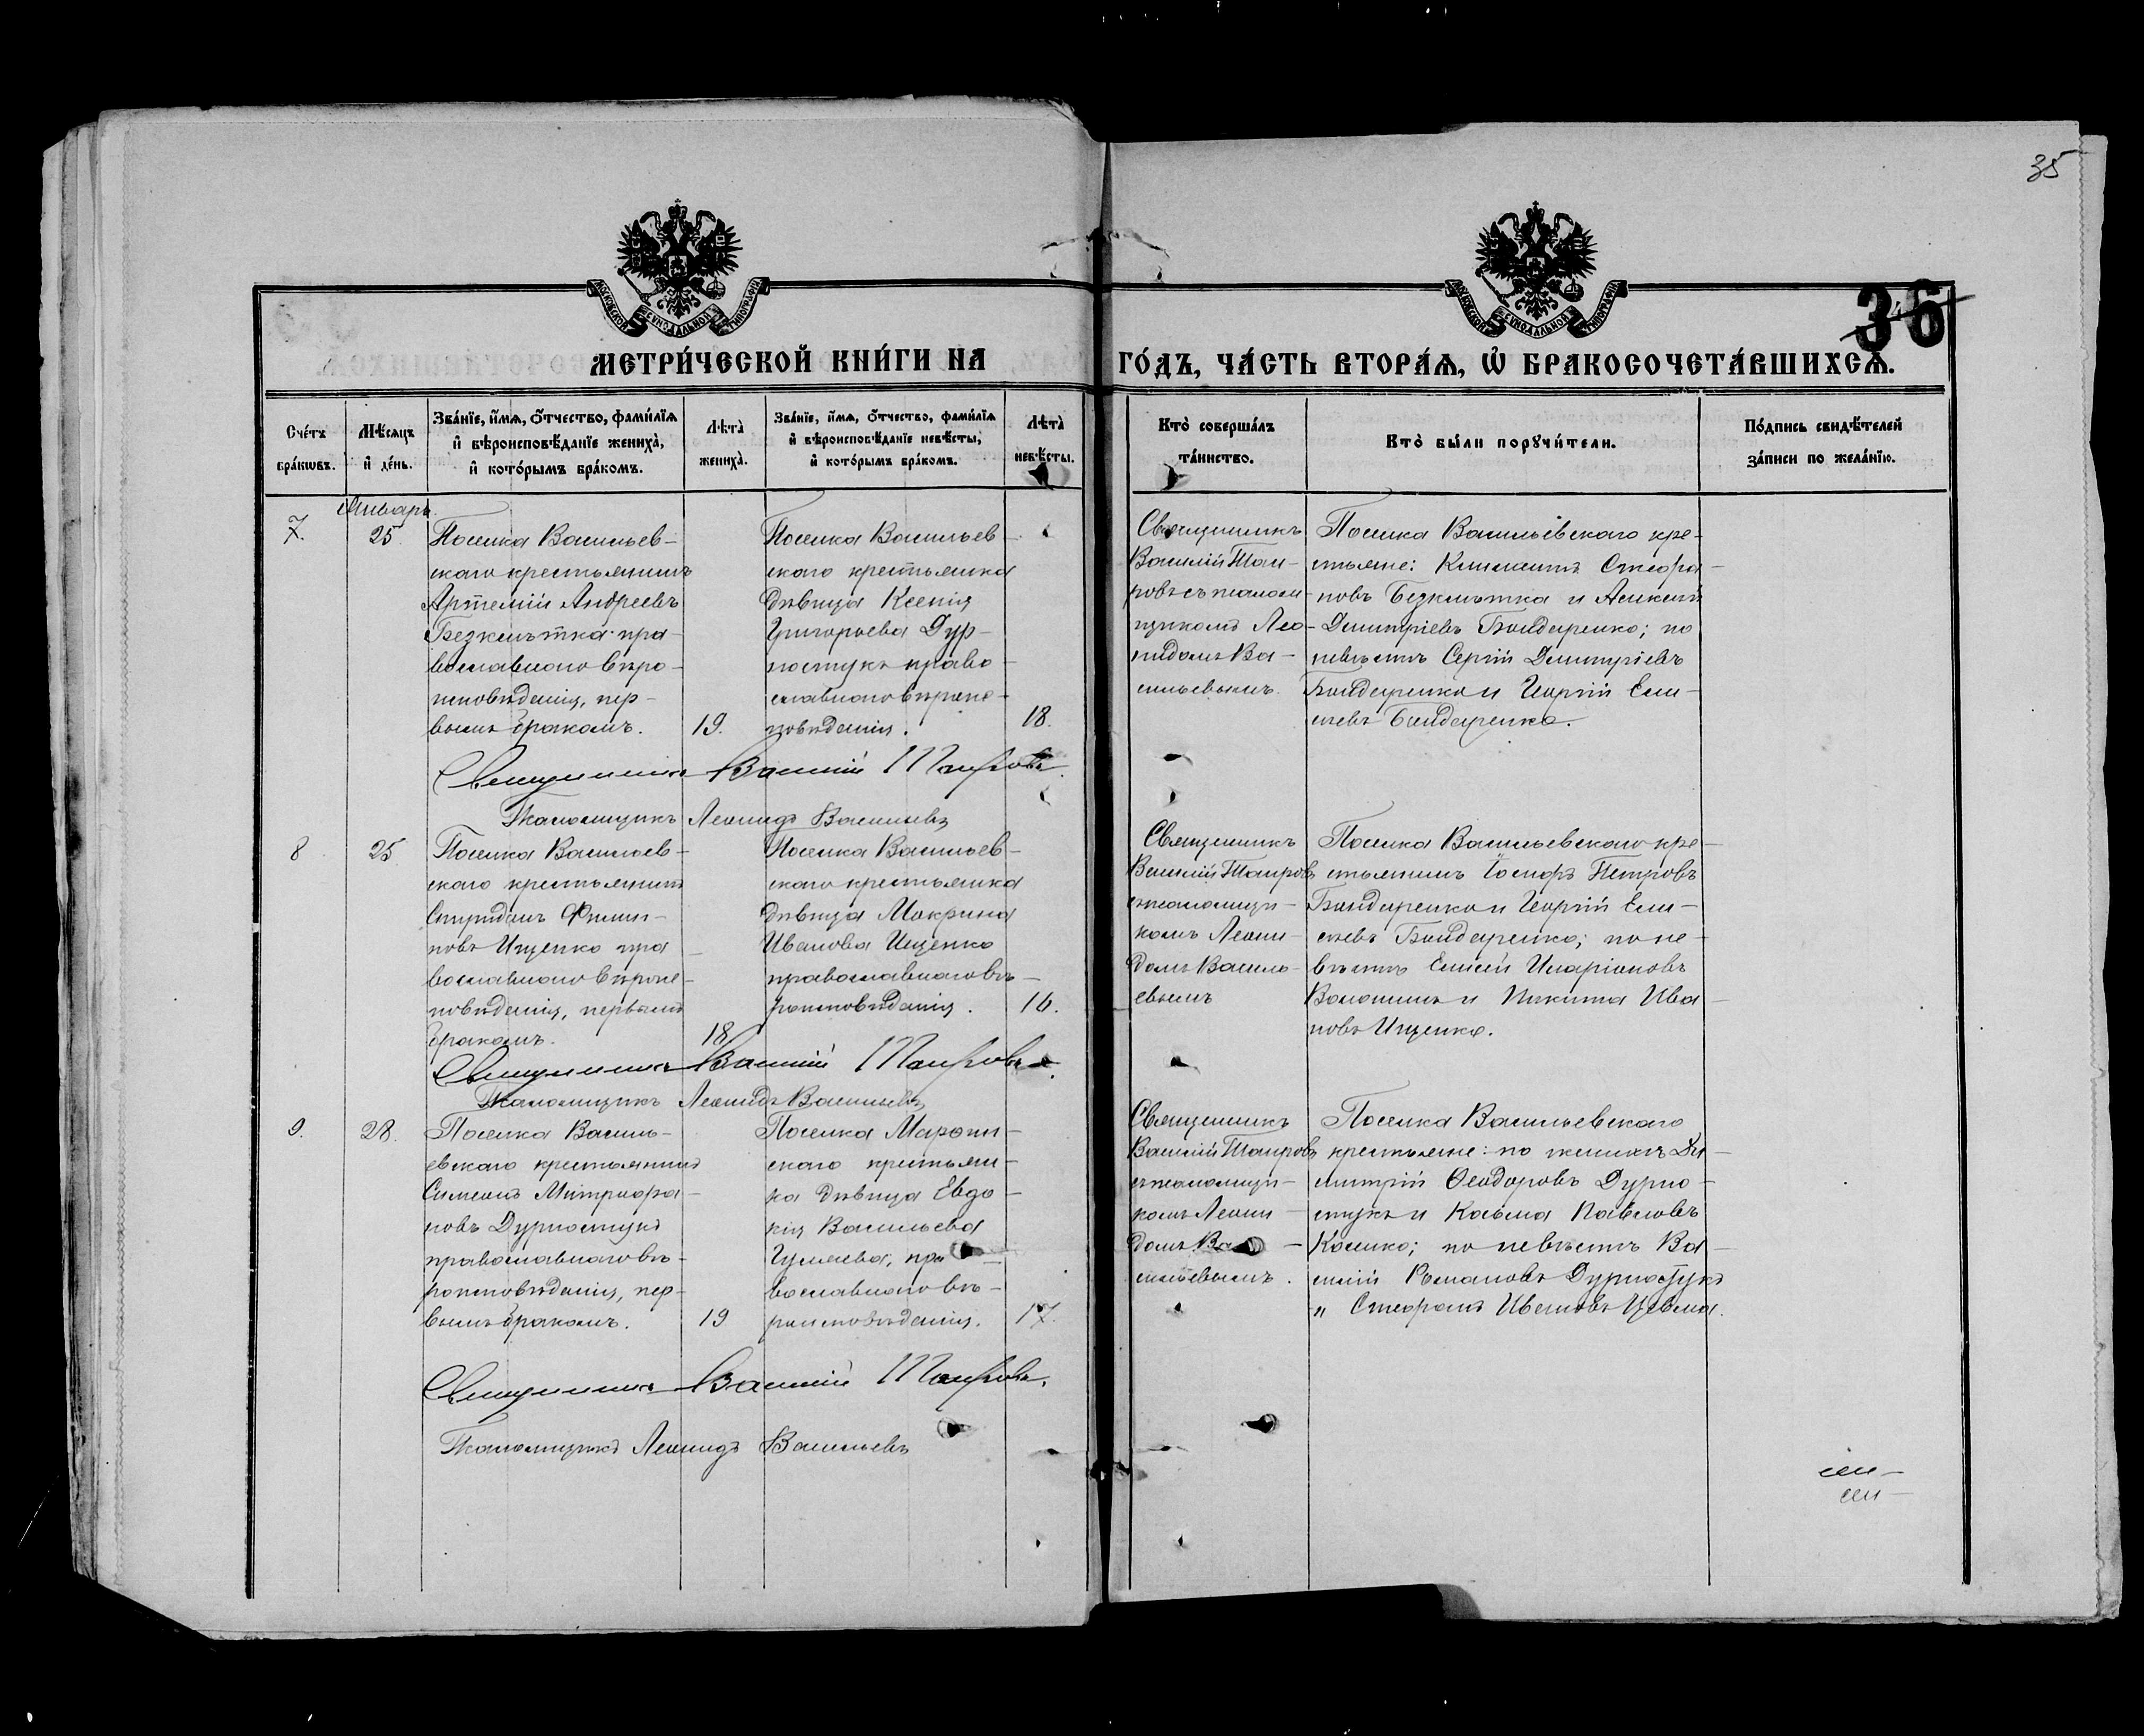 35
36
МЕТРИ́ЧЕСКОЙ КНИ́ГИ НА
ГО́ДЪ, ЧА́СТЬ ВТОРА́Ѧ, Ѡ҆ БРАКОСОЧЕТА́ВШИХСѦ.
Сче́тъ бра́кѡвъ.
Мѣ́сѧцъ и҆ де́нь.
Зва́нїе, и҆́мѧ, ѻ҆́тчество, фами́лїѧ
и҆ вѣроисповѣ́данїе жениха̀,
и҆ кото́рымъ бра́комъ.
Лѣта̀ жениха̀.
Зва́нїе, и҆́мѧ, ѻ҆́тчество, фами́лїѧ
и҆ вѣроисповѣ́данїе невѣ́сты,
и҆ кото́рымъ бра́комъ.
Лѣта̀ невѣ́сты.
Кто̀ соверша́лъ
та́инство.
Кто̀ бы́ли порꙋчи́тели.
По́дпись свидѣ́телей
за́писи по жела́нїю.
Январь.
7.
25.
Поселка Васильев-
скаго крестьянинъ
Артемій Андреевъ
Безклѣтка пра-
вославнаго вѣро-
исповѣданія, пер-
вымъ бракомъ.
19.
Поселка Васильев-
скаго крестьянка
дѣвица Ксенія
Григорьева Дур-
ностукъ право-
славнаго вѣроис-
повѣданія.
18.
Священникъ
Василій Таи-
ровъ съ псалом-
щикомъ Лео-
нидомъ Ва-
сильевымъ.
Поселка Васильевскаго кре-
стьяне: Климентъ Стефа-
новъ Безклѣтка и Алексѣй
Димитріевъ Бондаренко; по
невѣстѣ Сергій Димитріевъ
Бондаренко и Георгій Ели-
сѣевъ Бондаренко.
Священникъ Василій Таировъ.
Псаломщикъ Леонидъ Васильевъ
8
25
Поселка Васильев-
скаго крестьянинъ
Спиридонъ Филип-
повъ Ищенко пра-
вославнаго вѣроис-
повѣданія, первымъ
бракомъ.
18
Поселка Васильев-
скаго крестьянка
дѣвица Макрина
Иванова Ищенко
православнаго вѣ-
роисповѣданія.
16.
Священникъ
Василій Таировъ
съ псаломщи-
комъ Леони-
домъ Василь-
евымъ
Поселка Васильевскаго кре-
стьянинъ Іосифъ Петровъ
Бондаренко и Георгій Ели-
сѣевъ Бондаренко; по не-
вѣстѣ Елисей Иларіоновъ
Волошинъ и Никита Ива-
новъ Ищенко.
Священникъ Василій Таировъ.
Псаломщикъ Леонидъ Васильевъ
9.
28.
Поселка Василь-
евскаго крестьянинъ
Симеонъ Митрофа-
новъ Дурностукъ
православнаго вѣ-
роисповѣданія, пер-
вымъ бракомъ.
19
Поселка
скаго крестьян-
ка дѣвица Евдо-
кія Васильева
пра-
вославнаго вѣ-
роисповѣданія.
17.
Священникъ
Василій Таировъ
съ псаломщи-
комъ Леони-
домъ Ва-
сильевымъ.
Поселка Васильевскаго
крестьяне: по женихѣ Ди-
митрій Ѳеодоровъ Дурно-
стукъ и Козьма Павловъ
по невѣстѣ Ва-
силій Романовъ Дурностукъ
" Стефанъ Ивановъ
Священникъ Василій Таировъ.
Псаломщикъ Леонидъ Васильевъ